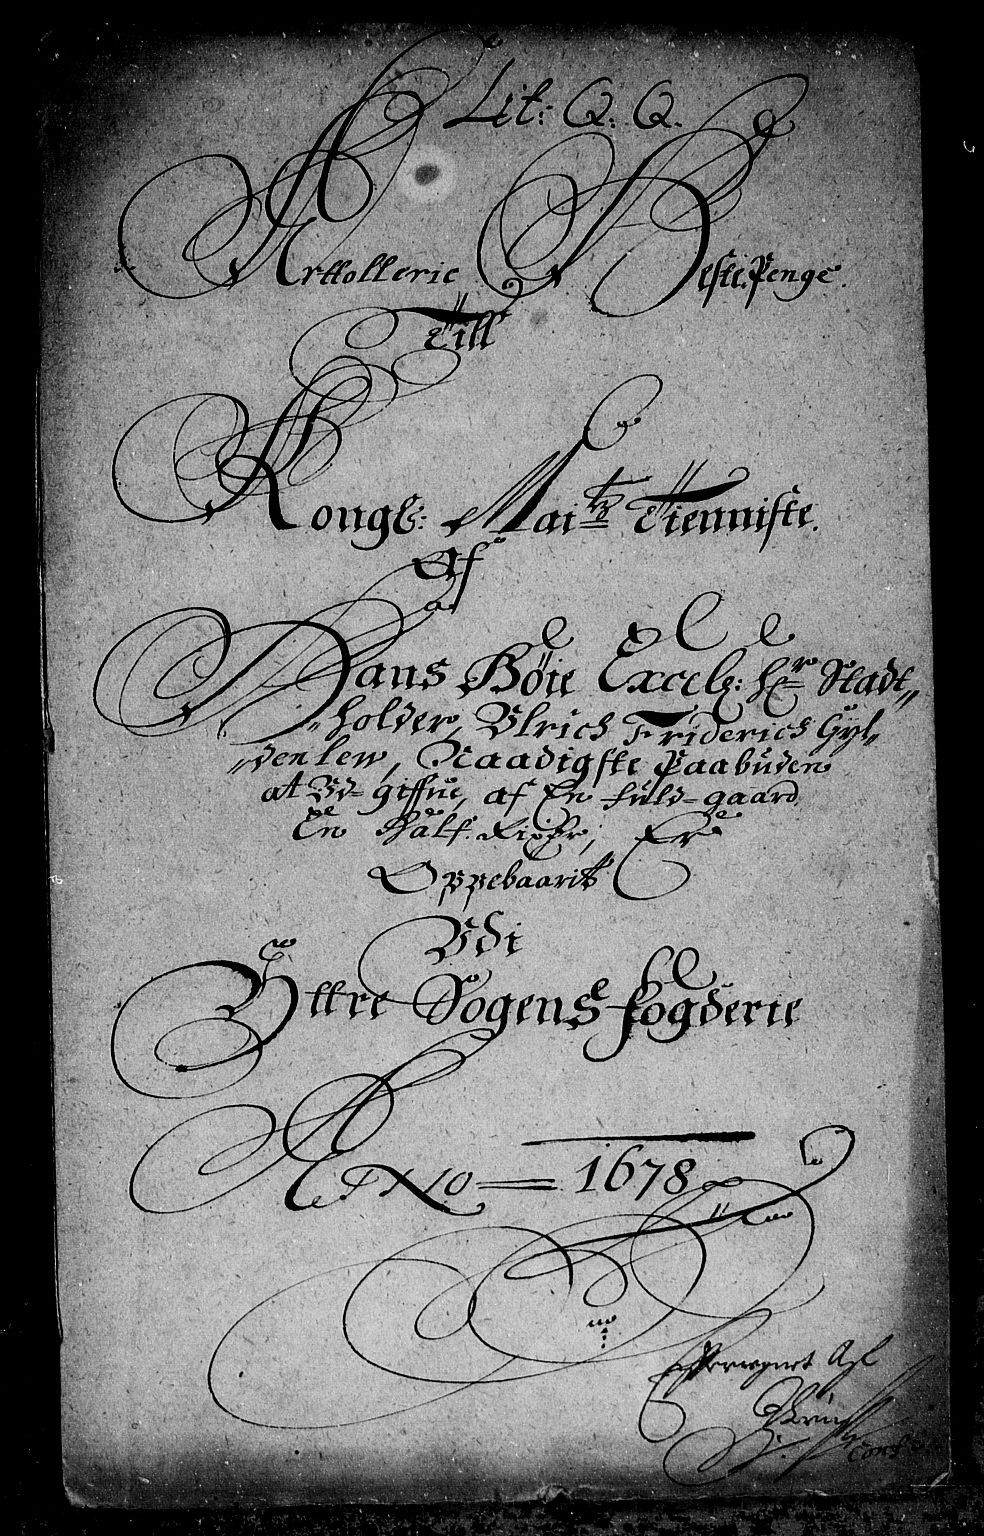 Lit: Q: Q.
Artollerie Heste. Penge.
Till
Kongl: Maitz Tienniste.
Af
Hans Høie Excell: Hr Stadt„
„holder, Ulrich Friderich Gyl„
„denlew, Naadigste Paabuden
at Ud-giffue, af En fuld-gaard
En Half. Rixdr, Er
Oppebaaritt
Udi
Yttre Sogens-fogderie
ANNO = 1678